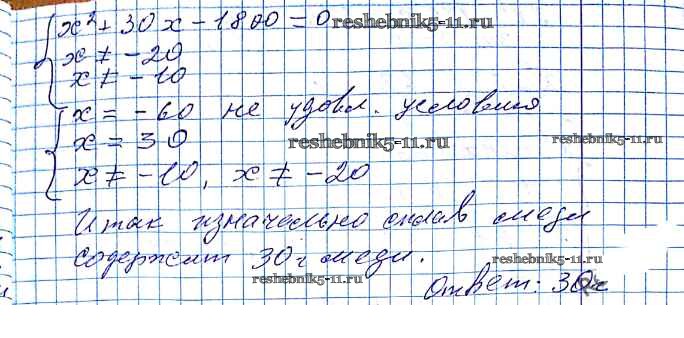 x² + 30x - 1800 = 0 reshebnik5-11.ru
x ≠ -20
x ≠ -10
x = -60 не удовл. условия
x = 30 reshebnik5-11.ru reshebnik5-11.ru
x ≠ -10, x ≠ -20
Итак изначально сплав меди
содержит 30 г меди.
reshebnik5-11.ru reshebnik5-11.ru
Ответ: 30г